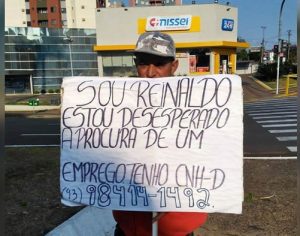 nissei
SOU REINALDO
ESTOU DESESPERADO
A PROCURA DE UM
EMPREGO TENHO CNH-D
(43) 98414-1492